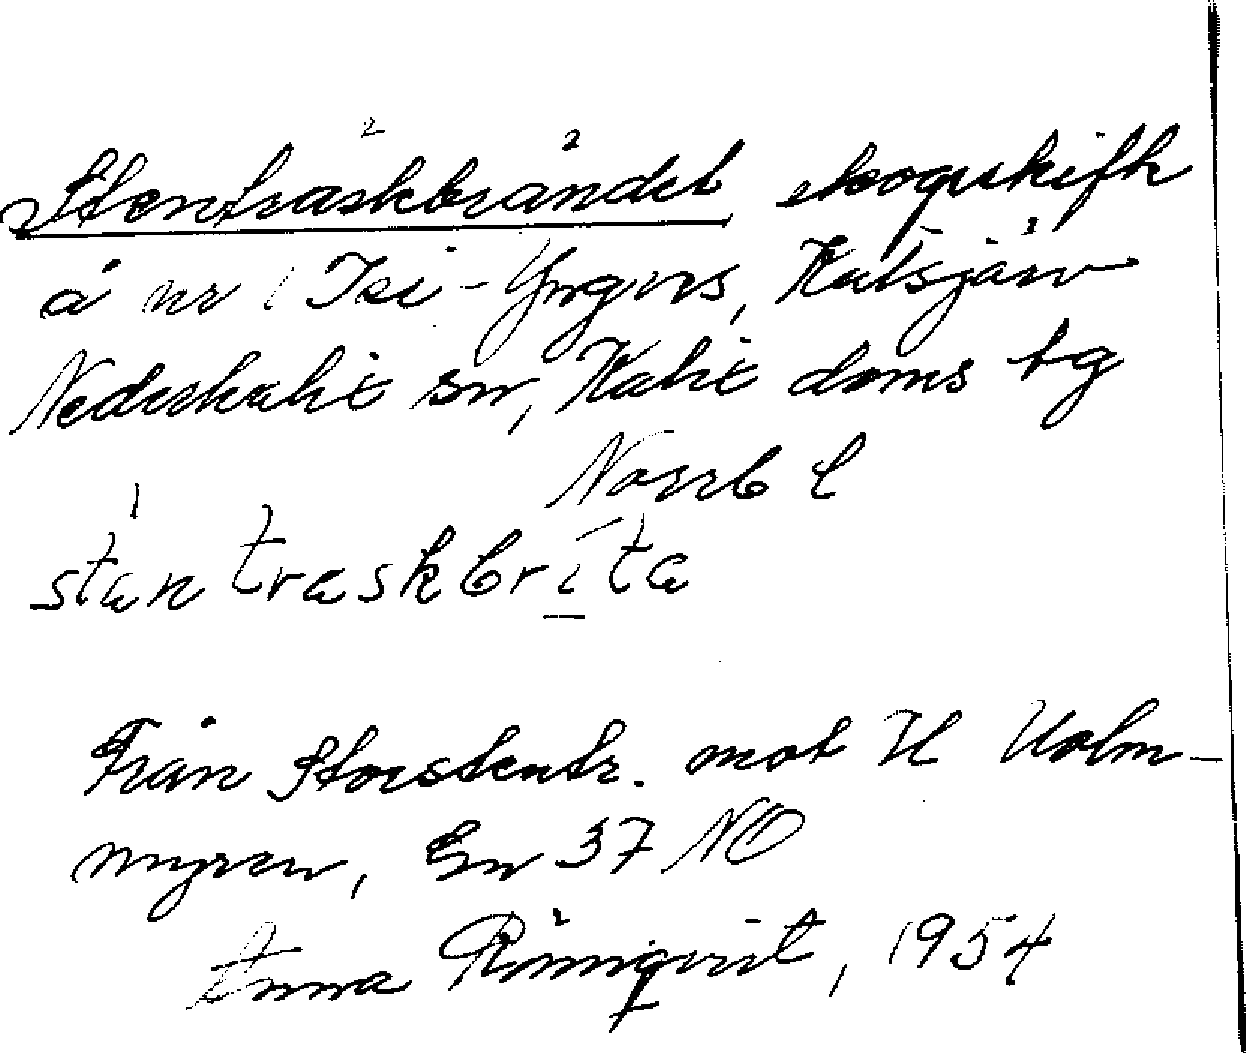 Stenträskbrändet skogsskifte
å nr 1 Isi-Yrgens, Kälsjärv
Nederkalix sn, Kalix doms tg
Norrb l
stæn træskbrita
Från Storstentr. mot H Holm-
myren, Gn 37 NO
Anna Rönnqvist, 1954